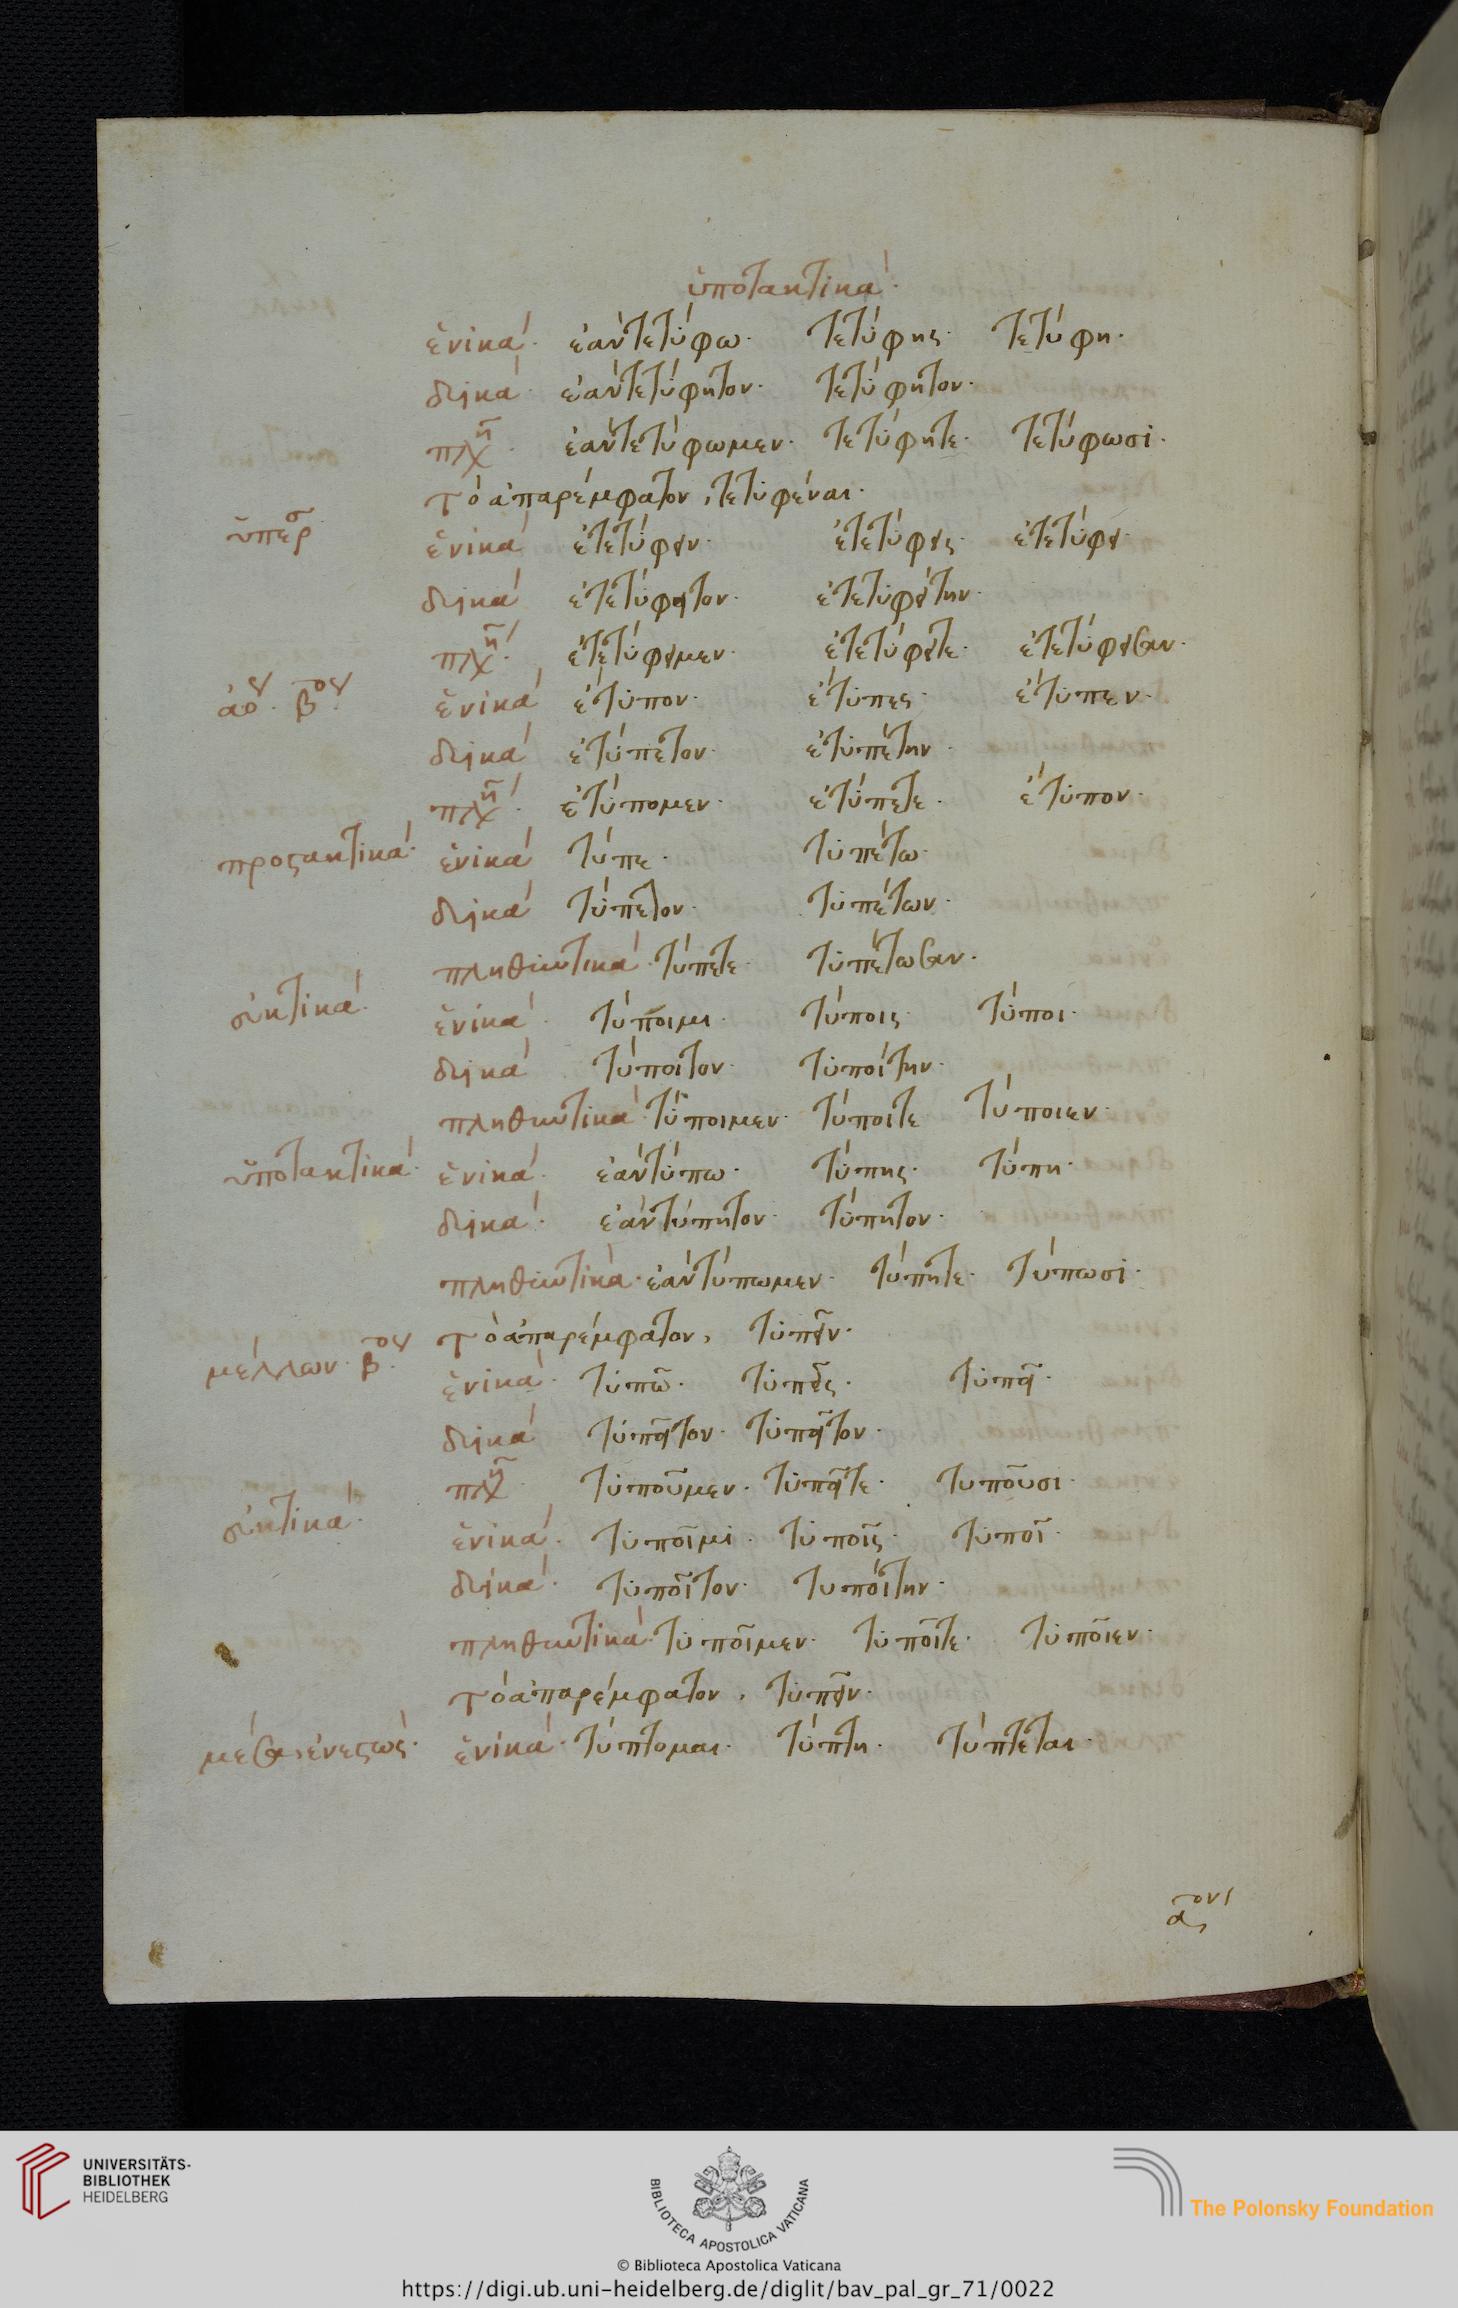 ὑποτακτικά·
ἑνικά· ἐὰν τετύφω· τετύφης· τετύφη·
δυικά· ἐὰν τετύφητον· τετύφητον·
πλη· ἐὰν τετύφωμεν· τετύφητε· τετύφωσι·
τὸ ἀπαρέμφατον, τετυφέναι·
ὑπερσ
ἑνικά ἐτετύφειν· ἐτετύφεις· ἐτετύφει·
δυικά ἐτετύφειτον· ἐτετυφείτην·
πλη· ἐτετύφειμεν· ἐτετύφειτε· ἐτετύφεισαν·
ἀο· βου· ἑνικά ἔτυπον· ἔτυπες· ἔτυπεν·
δυικά ἐτύπετον· ἐτυπέτην·
πλη· ἐτύπομεν· ἐτύπετε· ἔτυπον·
προστακτικά· ἑνικά τύπε· τυπέτω·
δυικά τύπετον· τυπέτων·
πληθυντικά· τύπετε· τυπέτωσαν·
εὐκτικά· ἑνικά· τύποιμι· τύποις· τύποι·
δυικά τύποιτον· τυποίτην·
πληθυντικά· τύποιμεν· τύποιτε τύποιεν·
ὑποτακτικά· ἑνικά· ἐὰν τύπω· τύπης· τύπη·
δυικά· ἐὰν τύπητον· τύπητον·
πληθυντικά· ἐὰν τύπωμεν· τύπητε· τύπωσι·
τὸ ἀπαρέμφατον, τυπεῖν·
μέλλων· βου·
ἑνικά· τυπῶ· τυπεῖς· τυπεῖ·
δυικά τυπεῖτον· τυπεῖτον·
πλη· τυποῦμεν· τυπεῖτε· τυποῦσι·
εὐκτικά· ἑνικά· τυποῖμι· τυποῖς· τυποῖ·
δυικά· τυποῖτον· τυποίτην·
πληθυντικά· τυποῖμεν· τυποῖτε· τυποῖεν·
τὸ ἀπαρέμφατον, τυπεῖν·
μέσα, ἐνεστώς· ἑνικά· τύπτομαι· τύπτη· τύπτεται·
UNIVERSITÄTS-
BIBLIOTHEK
HEIDELBERG
BIBLIOTECA APOSTOLICA VATICANA
The Polonsky Foundation
© Biblioteca Apostolica Vaticana
https://digi.ub.uni-heidelberg.de/diglit/bav_pal_gr_71/0022